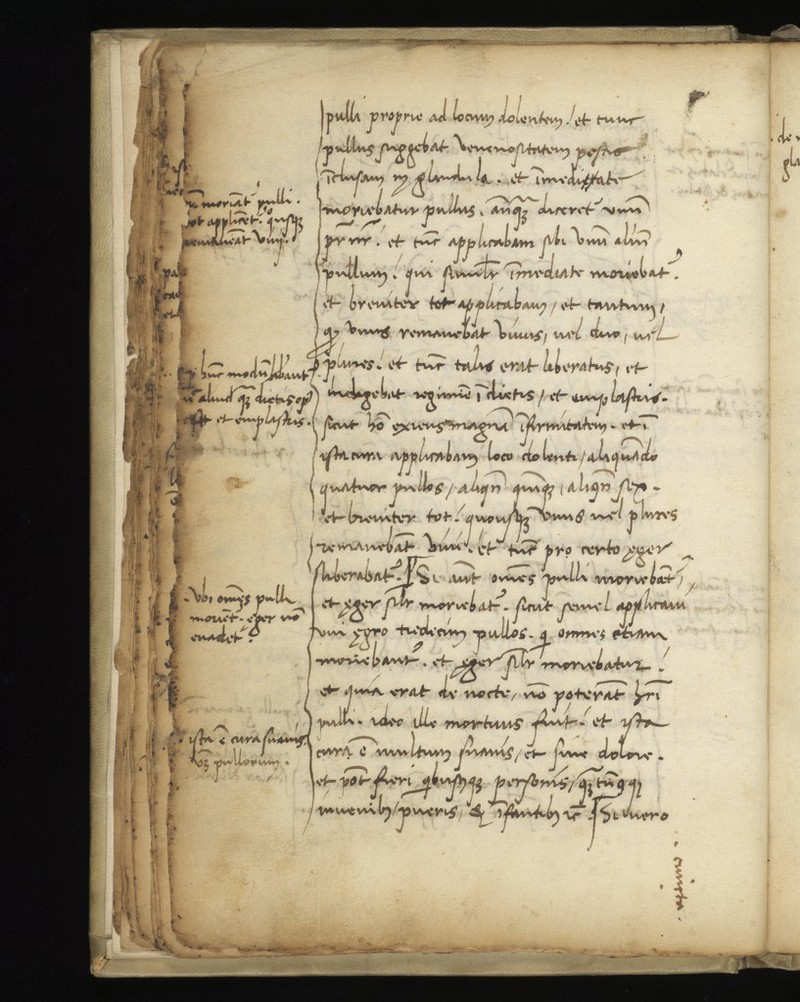 pulli proprie ad locum dolentem! et tunc
pullus suggebat venenositatem pestis
īclusam ī glandula. et īmediate
moriebatur pullus, anq̃ diceret unū
pr̄ nr̄! et tūc applicabam sibi unū aliū
pullum! qui simil̄r īmediate moriebat᷒.
et breviter tot applicabam, et tantum,
unus remanebāt vivus, vel duo, vel
plures! et tūc talis erat liberatus, et
indigebat regimīe ī dietis, et emplastris.
sicut hō exiens magnā īfirmitatem. et ī
ista cura applicabam loco dolenti, aliquādo
quatuor pullos, aliqn̄ quīq3, aliqn̄ sex.
et breviter tot! quousq3 unus vel plures
remanebāt vivi. et tūc pro certo ęger
liberabat᷒. Si aūt om̄es pulli moriebāt᷒,
et ęger sil̄r moriebat᷒. sicut semel applicavi
uni ęgro tredecim pullos. q̄ omnes etiam
moriebant᷒. et ęger sil̄r moriebatur!
et quia erat de nocte, nō poterāt hr̄i
pulli. ideo ille mortuus fuit! et ista
cura ē multum suavis, et sine dolore.
et pōt fieri quibusq3 personis,
iuvenib3, pueris, & īfantib3 Si vero
cuncta
moriāt᷒ pulli.
tot applicēt᷒. quousq3
remaneāt vivi.
hūc modū liberant᷒
aliud q̃ dietis
et emplastris.
. Ubi om̄es pulli
moriēt᷒. ęger nō
evadet.
ista ē cura suavis.
v3 pullorum.